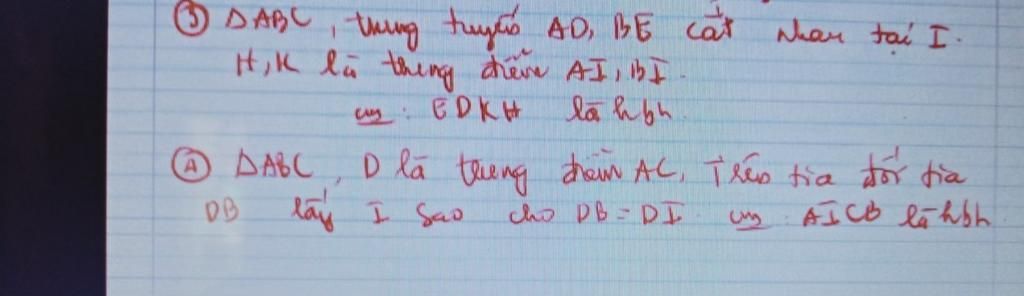 ③ ΔABC, trung tuyến AD, BE cắt nhau tại I.
H, K là trung điểm AI, BI.
cm: EDKH là hbh
④ ΔABC, D là trung điểm AC, Trên tia đối tia
DB lấy I sao cho DB = DI. cm: AICB là hbh